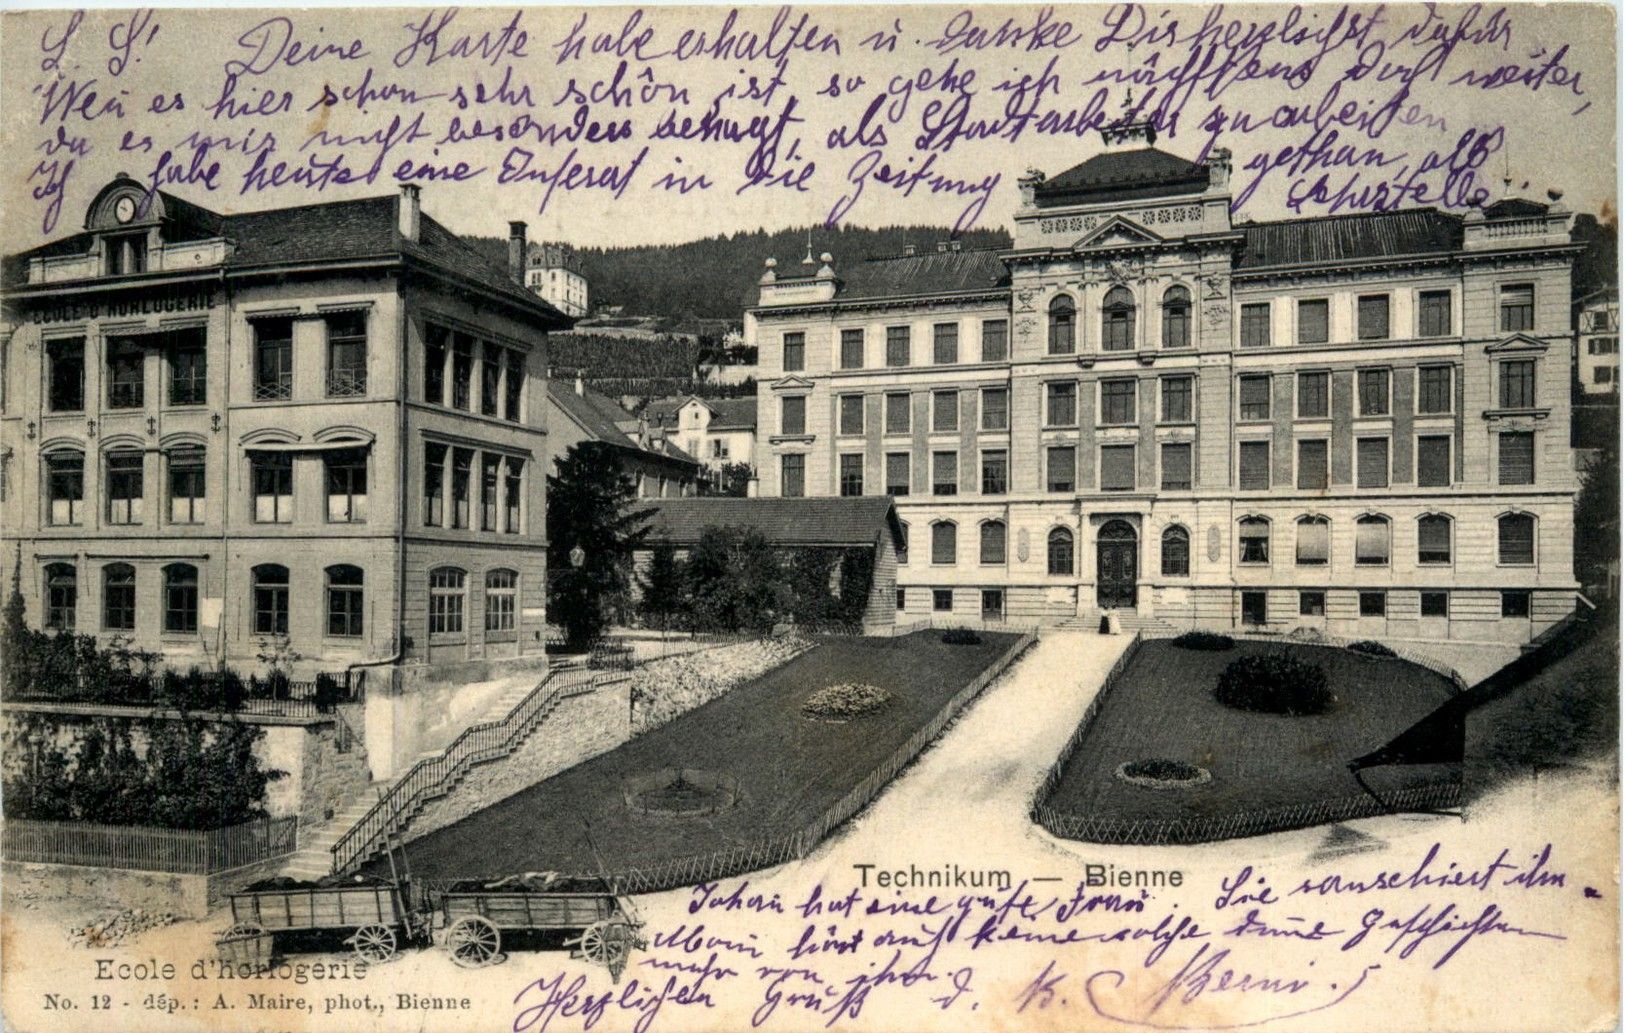 L. L! Deine Karte habe erhalten u. danke Dir herzlichst dafür
Wen es hier schon sehr schön ist, so gehe ich nächstens doch weiter,
da es mir nicht besonders behagt, als Stadtarbeiter zu arbeiten
Ich habe heute eine Inserat in die Zeitung gethan, als
ECOLE D'HORLOGERIE
Technikum — Bienne
Johan hat eine gute Frau. Sie ihm
Man hört auch keine solche dume Geschichten
mehr von ihm.
Herzlichen Gruß d. K.
Ecole d'horlogerie
No. 12 - dép.: A. Maire, phot., Bienne